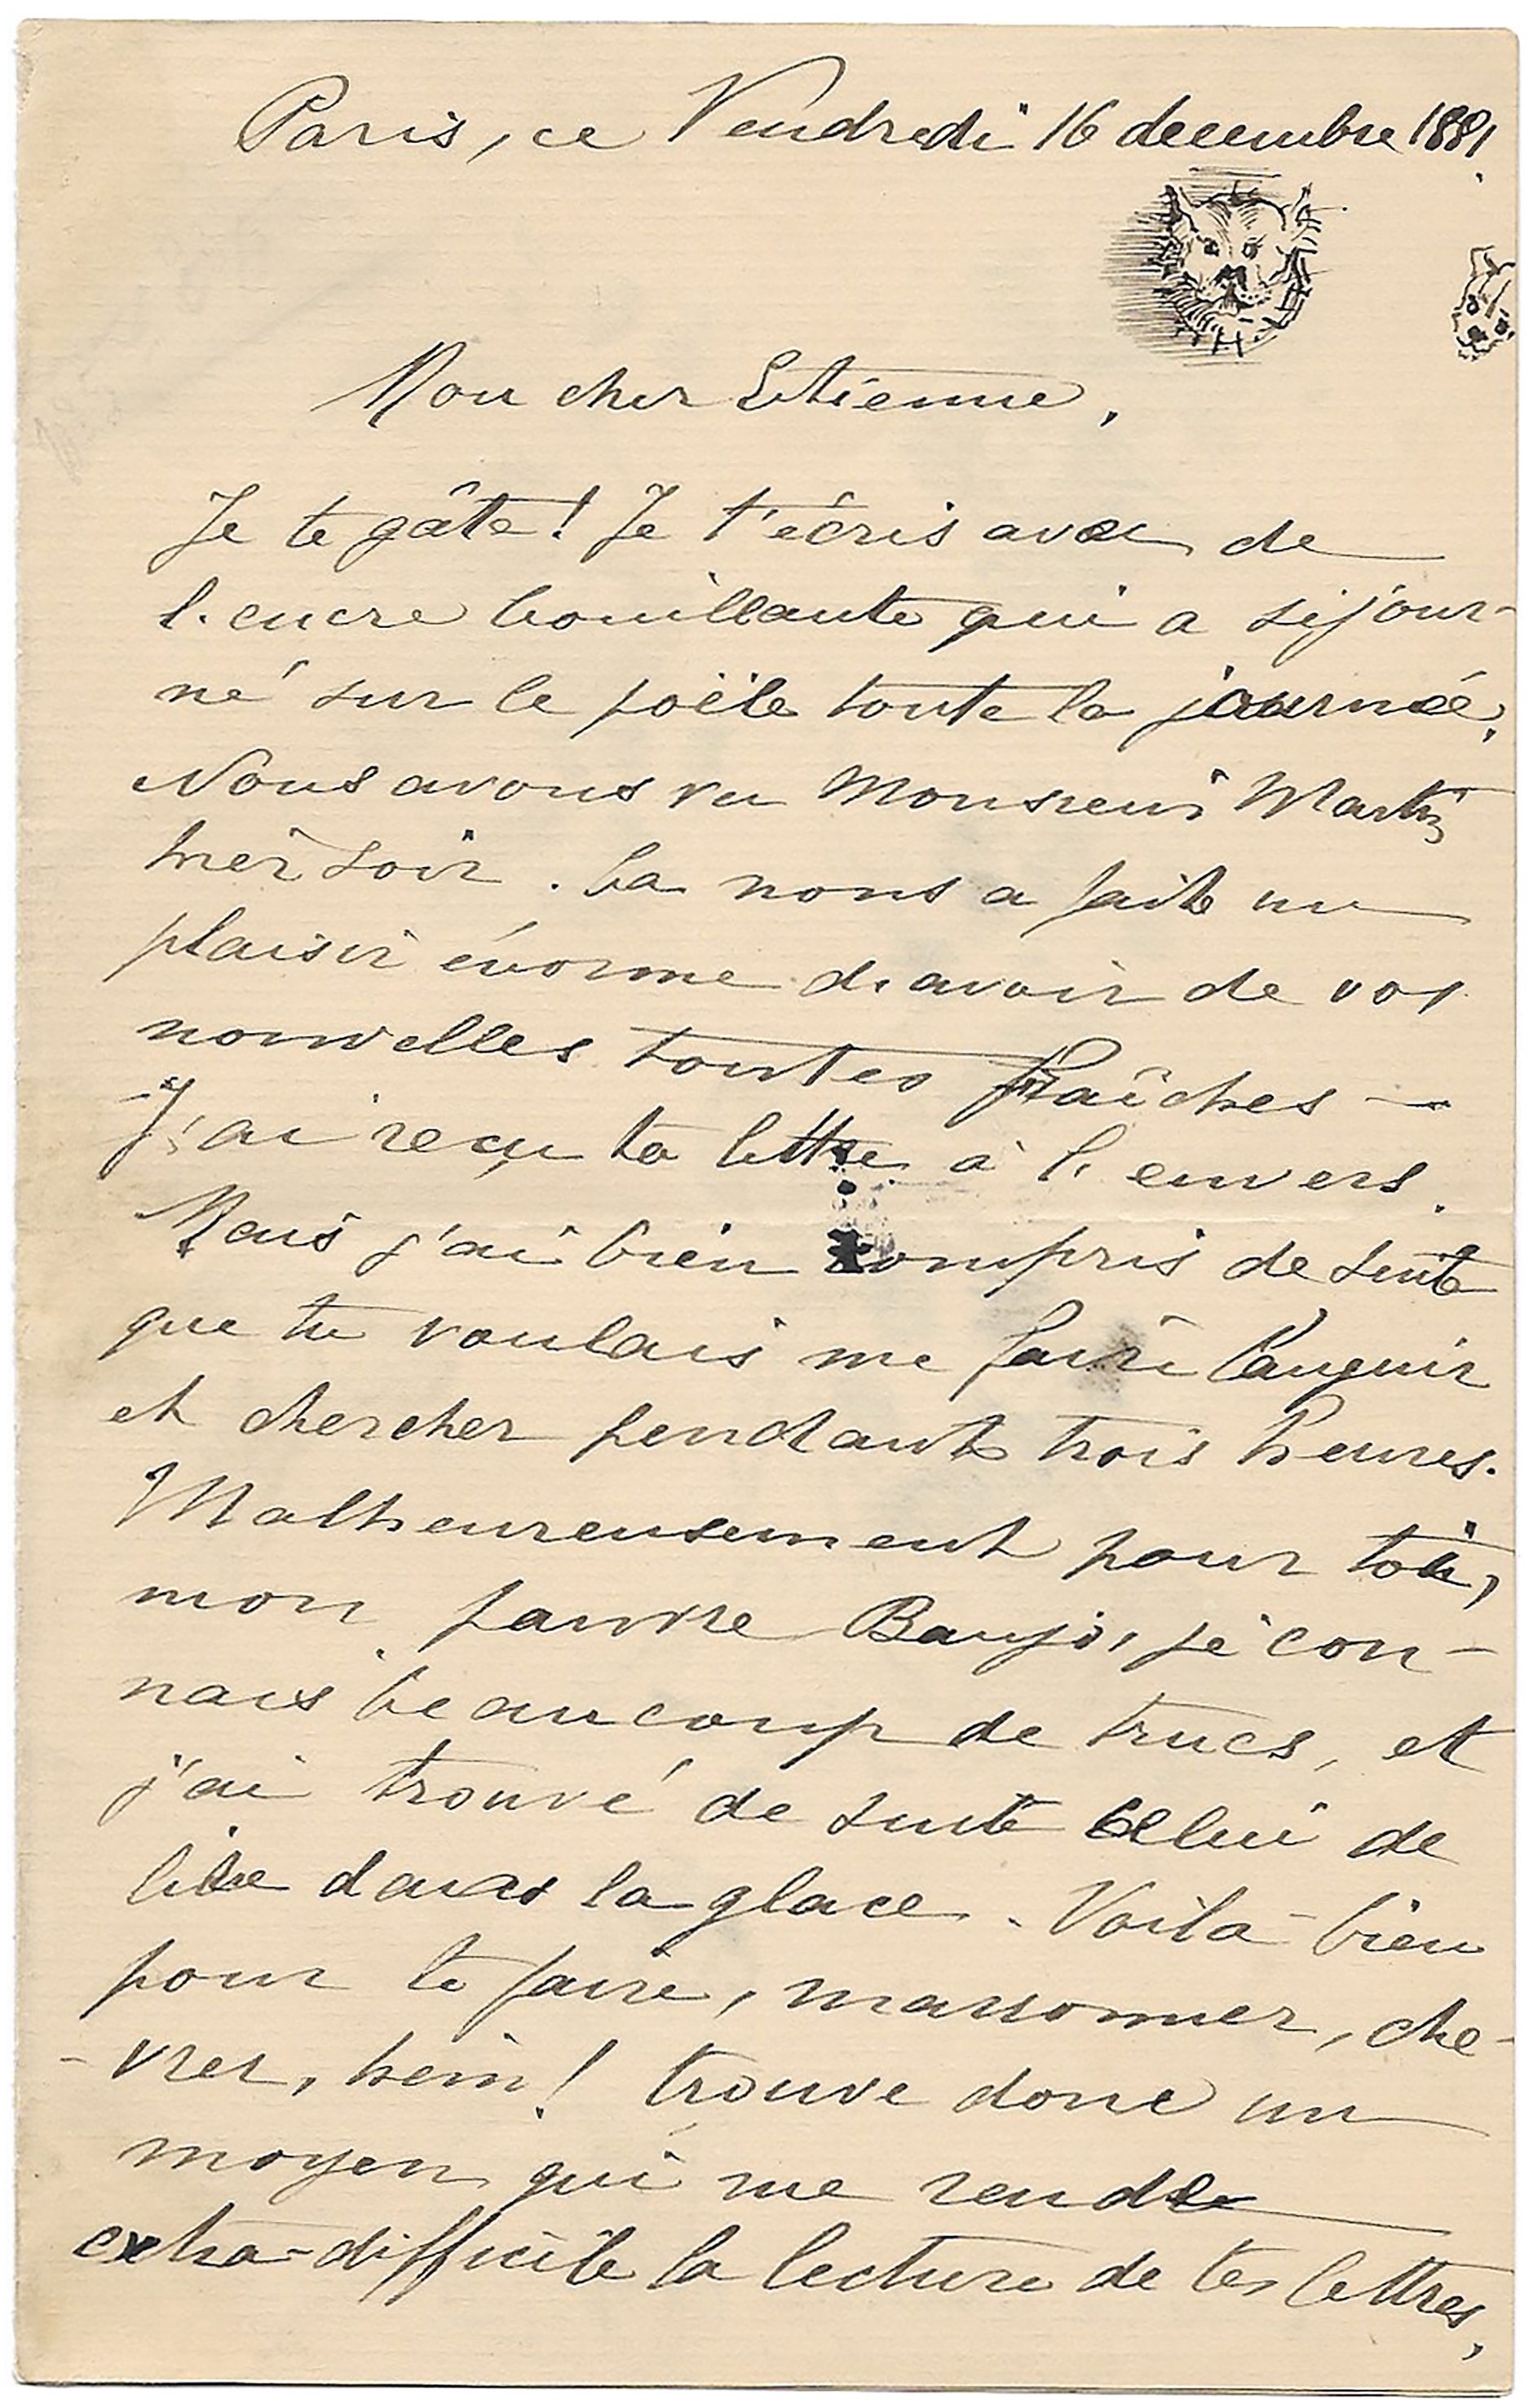 Paris, ce Vendredi 16 decembre 1881
Mon cher Etienne,
Je te gâte! Je t'écris avec de
l'encre bouillante qui a séjour-
né sur le poële toute la journée.
Nous avons vu Monsieur Martin
hier soir. Ça nous a faite un
plaisir énorme d'avoir de vos
nouvelles toutes fraîches —
J'ai reçu ta lettre à l'envers.
Mais j'ai bien compris de suite
que tu voulais me faire languir
et chercher pendant trois heures.
Malheureusement pour toi,
mon pauvre Banjo, je con-
nais beaucoup de trucs, et
j'ai trouvé de suite celui de
lire dans la glace. Voilà bien
pour te faire, marronner, che-
-vrer, hein! trouve donc un
moyen qui me rende
extra-difficile la lecture de tes lettres,